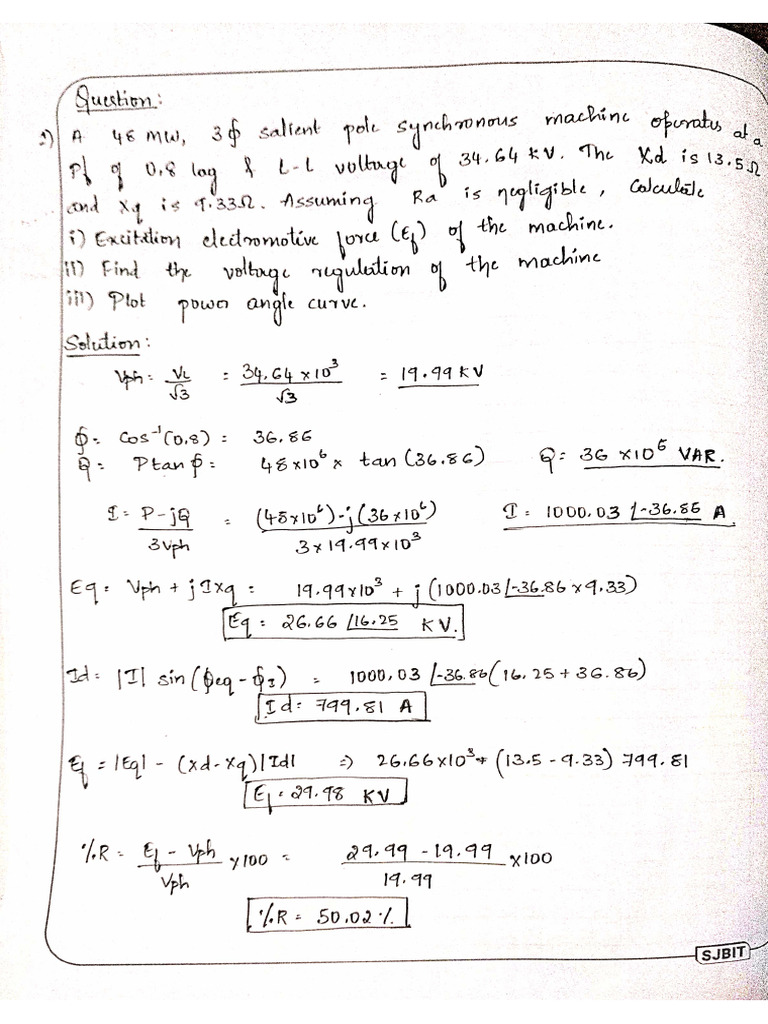 Question:
1) A 48 MW, 3ϕ salient pole synchronous machine operates at a
Pf of 0.8 lag & L-L voltage of 34.64 KV. The Xd is 13.5Ω
and Xq is 9.33Ω. Assuming Ra is negligible, calculate
i) Excitation electromotive force (Ef) of the machine.
ii) Find the voltage regulation of the machine
iii) Plot power angle curve.
Solution:
Vph = VL/√3 = 34.64 × 10³/√3 = 19.99 KV
ϕ = Cos⁻¹(0.8) = 36.86
Q = P tan ϕ = 48×10⁶ × tan (36.86) Q = 36 ×10⁶ VAR.
I = P-jQ/3Vph = (48×10⁶)-j(36×10⁶)/3×19.99×10³ I = 1000.03 ∠-36.86 A
Eq = Vph + jIXq = 19.99×10³ + j(1000.03∠-36.86 × 9.33)
Eq = 26.66 ∠16.25 KV.
Id = |I| sin(ϕeq - ϕI) = 1000.03 ∠-36.86 (16.25 + 36.86)
Id = 799.81 A
Ef = |Eq| - (Xd-Xq)|Id| => 26.66×10³ + (13.5 - 9.33) 799.81
Ef = 29.98 KV
%R = Ef - Vph/Vph ×100 = 29.99 - 19.99/19.99 ×100
%R = 50.02 %
SJBIT